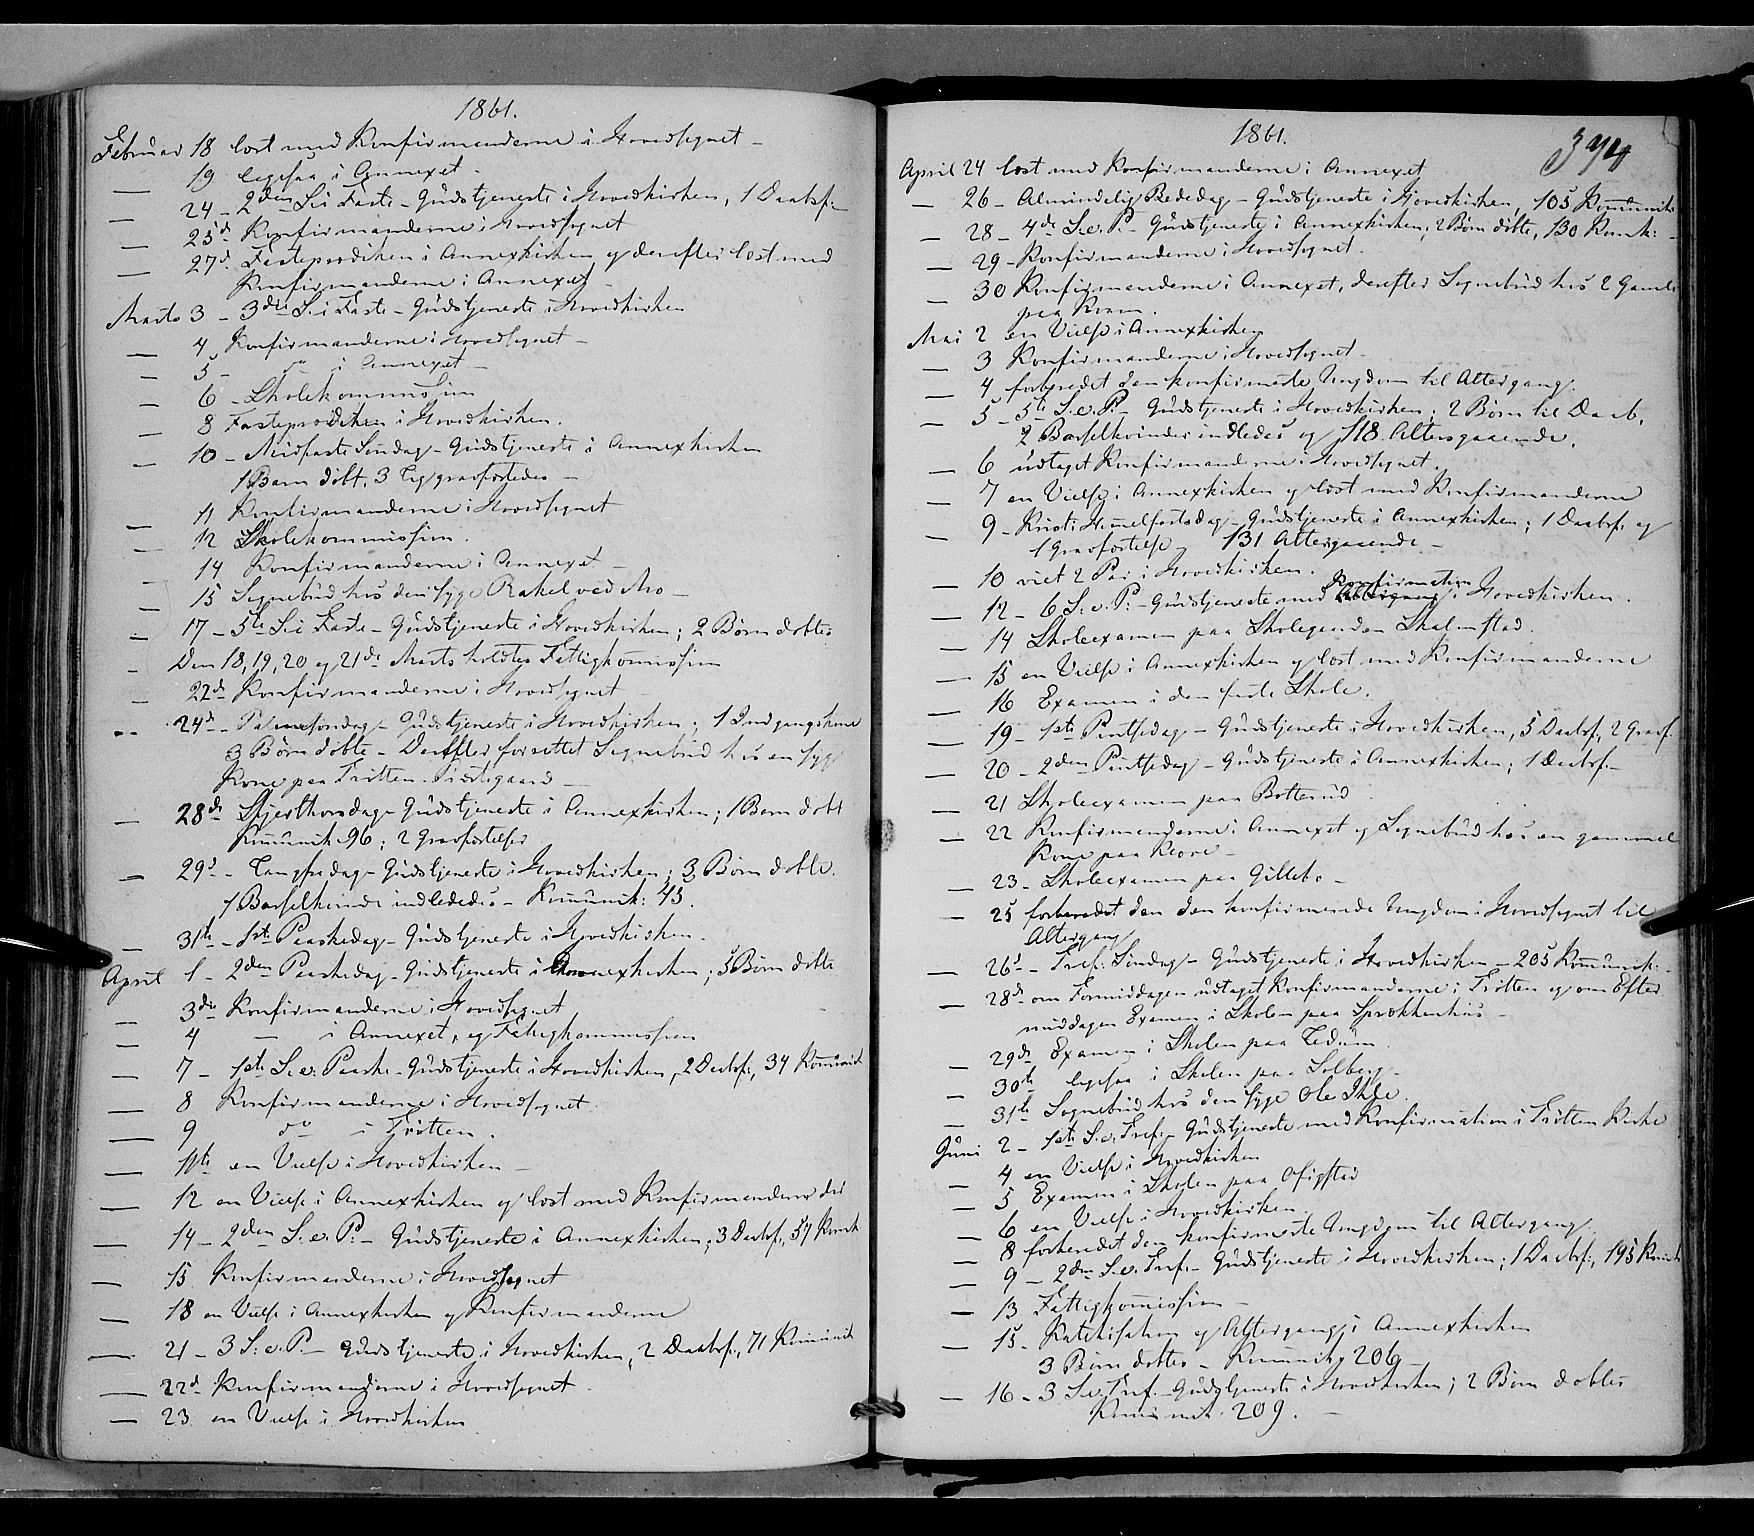 1861.
Februar 18 læst med Konfirmanderne i Hovedsognet –
— 19 ligesaa i Annexet –
— 24 – 2den S. i Faste – Gudstjeneste i Hovedkirken, 1 Daabsf. –
— 25d Konfirmanderne i Hovedsognet
— 27d. Fasteprædiken i Annexkirken og derefter læst med
Konfirmanderne i Annexet –
Marts 3 – 3die S. i Faste – Gudstjeneste i Hovedkirken
— 4 Konfirmanderne i Hovedsognet –
— 5 – do i Annexet –
— 6 – Skolekommission
— 8 Fasteprædiken i Hovedkirken.
— 10 – Midfaste Søndag – Gudstjeneste i Annexkirken
1 Barn døbt, 3 Lig gravfæstedes –
— 11 Konfirmanderne i Hovedsognet
— 12 Skolekommission.
— 14 Konfirmanderne i Annexet –
— 15 Sognebud hos den syge Rakel ved Mo –
— 17 – 5te S. i Faste – Gudstjeneste i Hovedkirken; 2 Børn døbtes
– Den 18, 19, 20 og 21de Marts holdtes Fattigkommission
— 22d Konfirmanderne i Hovedsognet –
— 24d – Palmesøndag – Gudstjeneste i Hovedkirken; 1 Indgangskone
3 Børn døbte – Derefter forrettet Sognebud hos en syg
Kone paa Tritten Prestegaard –
— 28de Skjærthorsdag – Gudstjeneste i Annexkirken; 1 Barn døbt
Kommunik. 96; 2 Gravfæstelser
— 29d – Langfredag – Gudstjeneste i Hovedkirken; 3 Børn døbte.
1 Barselkvinde indlededes – Kommunik: 45.
— 31te – 1ste Paaskedag – Gudstjeneste i Hovedkirken.
April 1 – 2den Paaskedag – Gudstjeneste i Annexkirken; 5 Børn døbte
— 3die Konfirmanderne i Hovedsognet
— 4 — i Annexet, og Fattigkommission
— 7 – 1ste S. e. Paaske – Gudstjeneste i Hovedkirken, 2 Daabsf., 34 Kommunik
— 8 Konfirmanderne i Hovedsognet.
— 9 do i Tritten.
— 11te en Vielse i Hovedkirken –
— 12 en Vielse i Annexkirken og læst med Konfirmanderne der
— 14 – 2den S. e. P. – Gudstjeneste i Annexkirken; 3 Daabsf., 57 Komk
— 15 Konfirmanderne i Hovedsognet
— 18 en Vielse i Annexkirken og Konfirmanderne
— 21 – 3 S. e. P. – Gudstjeneste i Hovedkirken, 2 Daabsf., 71 Kommunik
— 22d Konfirmanderne i Hovedsognet.
— 23 en Vielse i Hovedkirken
1861.
374
April 24 læst med Konfirmanderne i Annexet
— 26 – Almindelig Bededag – Gudstjeneste i Hovedkirken, 105 Kommunik
— 28 – 4de S. e. P. – Gudstjeneste i Annexkirken; 2 Børn døbte, 130 Komk: –
— 29 – Konfirmanderne i Hovedsognet.
— 30 Konfirmanderne i Annexet, derefter Sognebud hos 2 Gamle
paa Kram.
Mai 2 en Vielse i Annexkirken
— 3 Konfirmanderne i Hovedsognet –
— 4 forberedet den konfirmerte Ungdom til Altergang.
— 5 – 5te S. e. P. – Gudstjeneste i Hovedkirken; 2 Børn til Daab,
2 Barselkvinder indledes og 118 Altergaaende.
— 6 udtaget Konfirmanderne i Hovedsognet.
— 7 en Vielse i Annexkirken og læst med Konfirmanderne
— 9 – Kristi Himmelfartsdag – Gudstjeneste i Annexkirken; 1 Daabsf. og
1 Gravfæstelse – 131 Altergaaende –
— 10 viet 2 Par i Hovedkirken.
— 12 – 6 S. e. P: – Gudstjeneste med Konfirmation i Hovedkirken.
— 14 Skoleexamen paa Skolegaarden Skalmstad.
— 15 en Vielse i Annexkirken og læst med Konfirmanderne
— 16 Examen i den faste Skole.
— 19 – 1ste Pintsedag – Gudstjeneste i Hovedkirken, 5 Daabsf., 2 Gravf.
— 20 – 2den Pintsedag – Gudstjeneste i Annexkirken; 1 Daabsf. –
— 21 Skoleexamen paa Botterud
— 22 Konfirmanderne i Annexet og Sognebud hos en gammel
Kone paa –
— 23 – Skoleexamen paa Gillebo –
— 25 forberedet den den konfirmerede Ungdom i Hovedsognet til
Altergang
— 26d – Tref. Søndag – Gudstjeneste i Hovedkirken – 205 Kommunik: –
— 28de om Formiddagen udtaget Konfirmanderne i Tritten og om Efter
middagen Examen i Skolen paa Sprækkenhus –
— 29de Examen i Skolen paa Ledum.
— 30te ligesaa i Skolen paa Solberg –
— 31te Sognebud hos den syge Ole Ihle.
Juni 2 – 1ste S. e. Tref. – Gudstjeneste med Konfirmation i Tritten Kirke
— 4 en Vielse i Hovedkirken
— 5 Examen i Skolen paa
— 6 en Vielse i Hovedkirken
— 8 forberedet den konfirmerte Ungdom til Altergang.
— 9 – 2den S. e. Tref. – Gudstjeneste i Hovedkirken; 1 Daabsf., 195 Kmnik
— 13 Fattigkommission –
— 15. Katekisation og Altergang i Annexkirken
3 Børn døbtes – Kommunik. 206 –
— 16 – 3 S. e. Tref. – Gudstjeneste i Hovedkirken; 2 Børn døbtes
Kommunik. 209. –